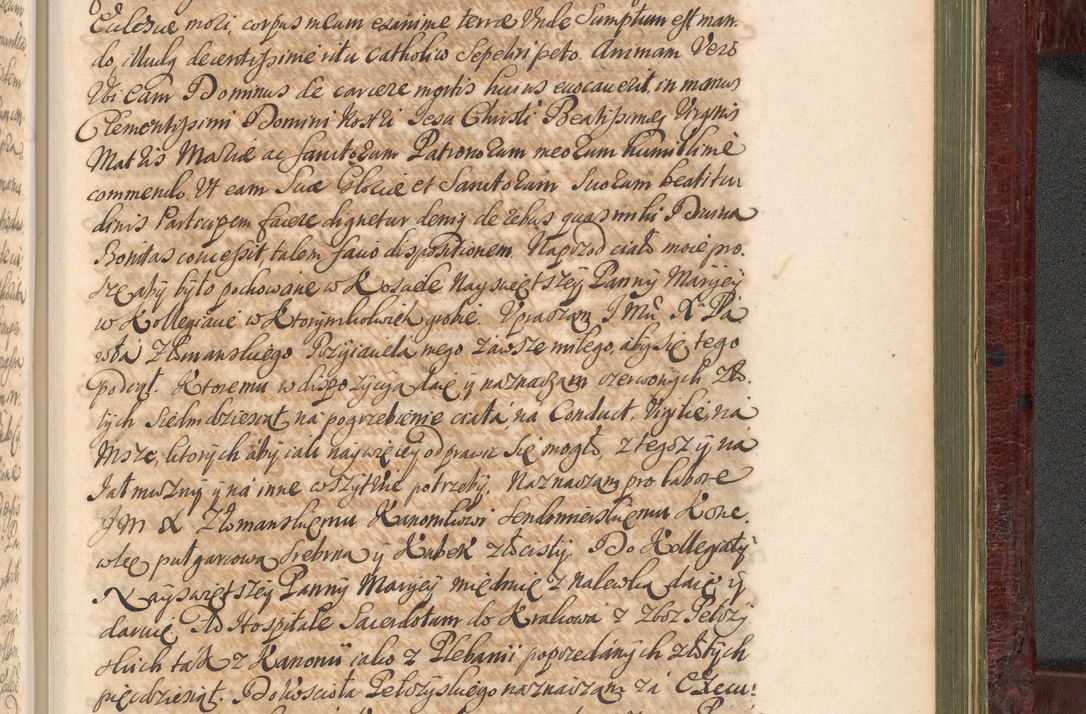 Ecclesiæ mori, corpus meum exanime terræ Unde Sumptum est man-
do, illudq decentissime ritu Catholico Sepeliri peto. Animam Vero
Ubi Eam Dominus de carcere mortis huius evocaverit, in manus
Clementissimi Domini Nostri Jesu Christi Beatissimæ Virginis
Matris Mariæ ac Sanctorum Patronorum meorum humillime
commendo, Ut eam Suæ Gloriæ et Sanctorum Suorum beatitu
dinis Participem facere dignetur demq de rebus quas mihi Divina
Bonitas concessit, talem facio dispositionem. Naprzod ciało moie pro-
szę aby było pochowane w Kosciele Nayswiętszey Panny Maryey
w Kollegiacie w Ktorymkolwiek grobie. Upraszam J Mci X Pra
rata Złomanskiego Przyiaciela mego zawsze miłego, aby się tego
podiął. Ktoremu w dispozycyą daię y naznaczam czerwonych zło-
tych Siedmdziesiąt na pogrzebienie ciała na Conduct, Vigilie na
Msze, ktorych aby iak naywięcey odprawic się mogło, z tegoz y na
Jałmuzny y na inne wszytkie potrzeby. Naznaczam pro labore
J M X Złomanskiemu Kanonikowi Sendomierskiemu Kone-
wkę pułgarcową Srebrną y Kubek złocisty. Do Kollegiaty
Nayswiętszey Panny Maryey miednicę z nalewką daię y
daruię. Ad Hospitale Sacerdotum do Krakowa z zboz Pełczy
skich tak z Kanonii iako z Plebanii poprzedanych złotych
pięcdziesiąt. Do Koscioła Pełczyskiego naznaczam za Execu-